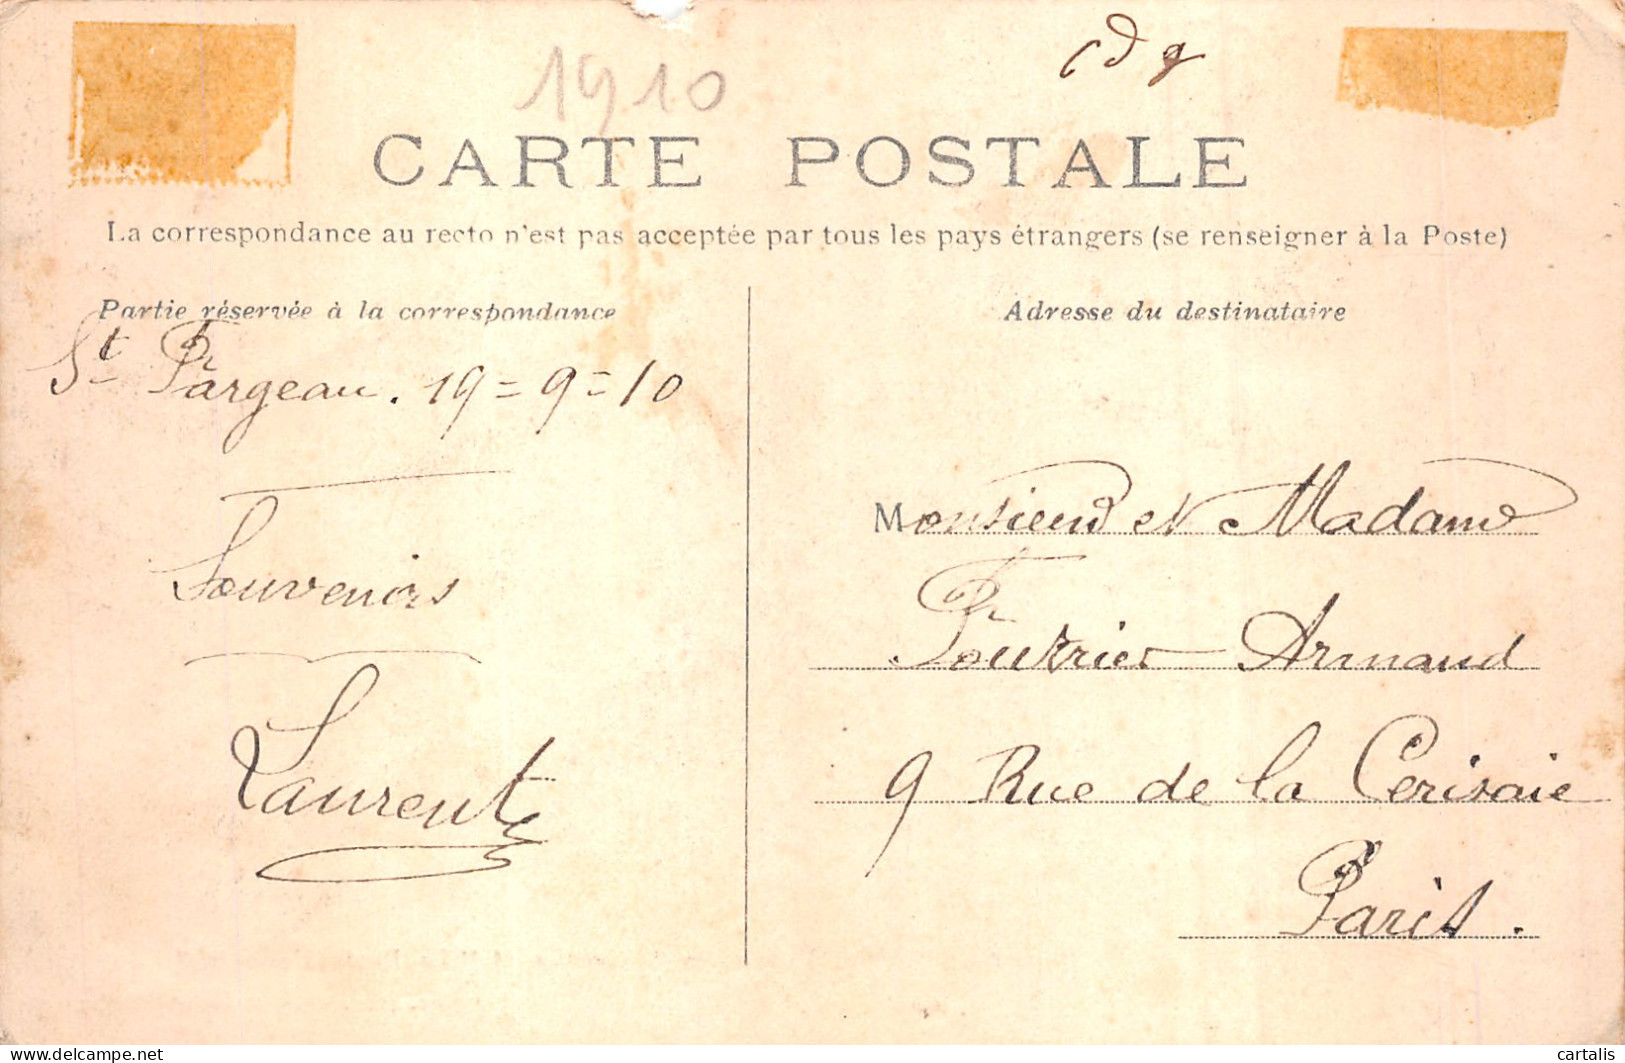 1910
cdg
CARTE POSTALE
La correspondance au recto n'est pas acceptée par tous les pays étrangers (se renseigner à la Poste)
Partie réservée à la correspondance
St Fargeau. 19=9=10
Souvenirs
Laurent
Adresse du destinataire
Monsieur et Madame
Fourrier Armand
9 Rue de la Cerisaie
Paris.
delcampe.net
cartalis